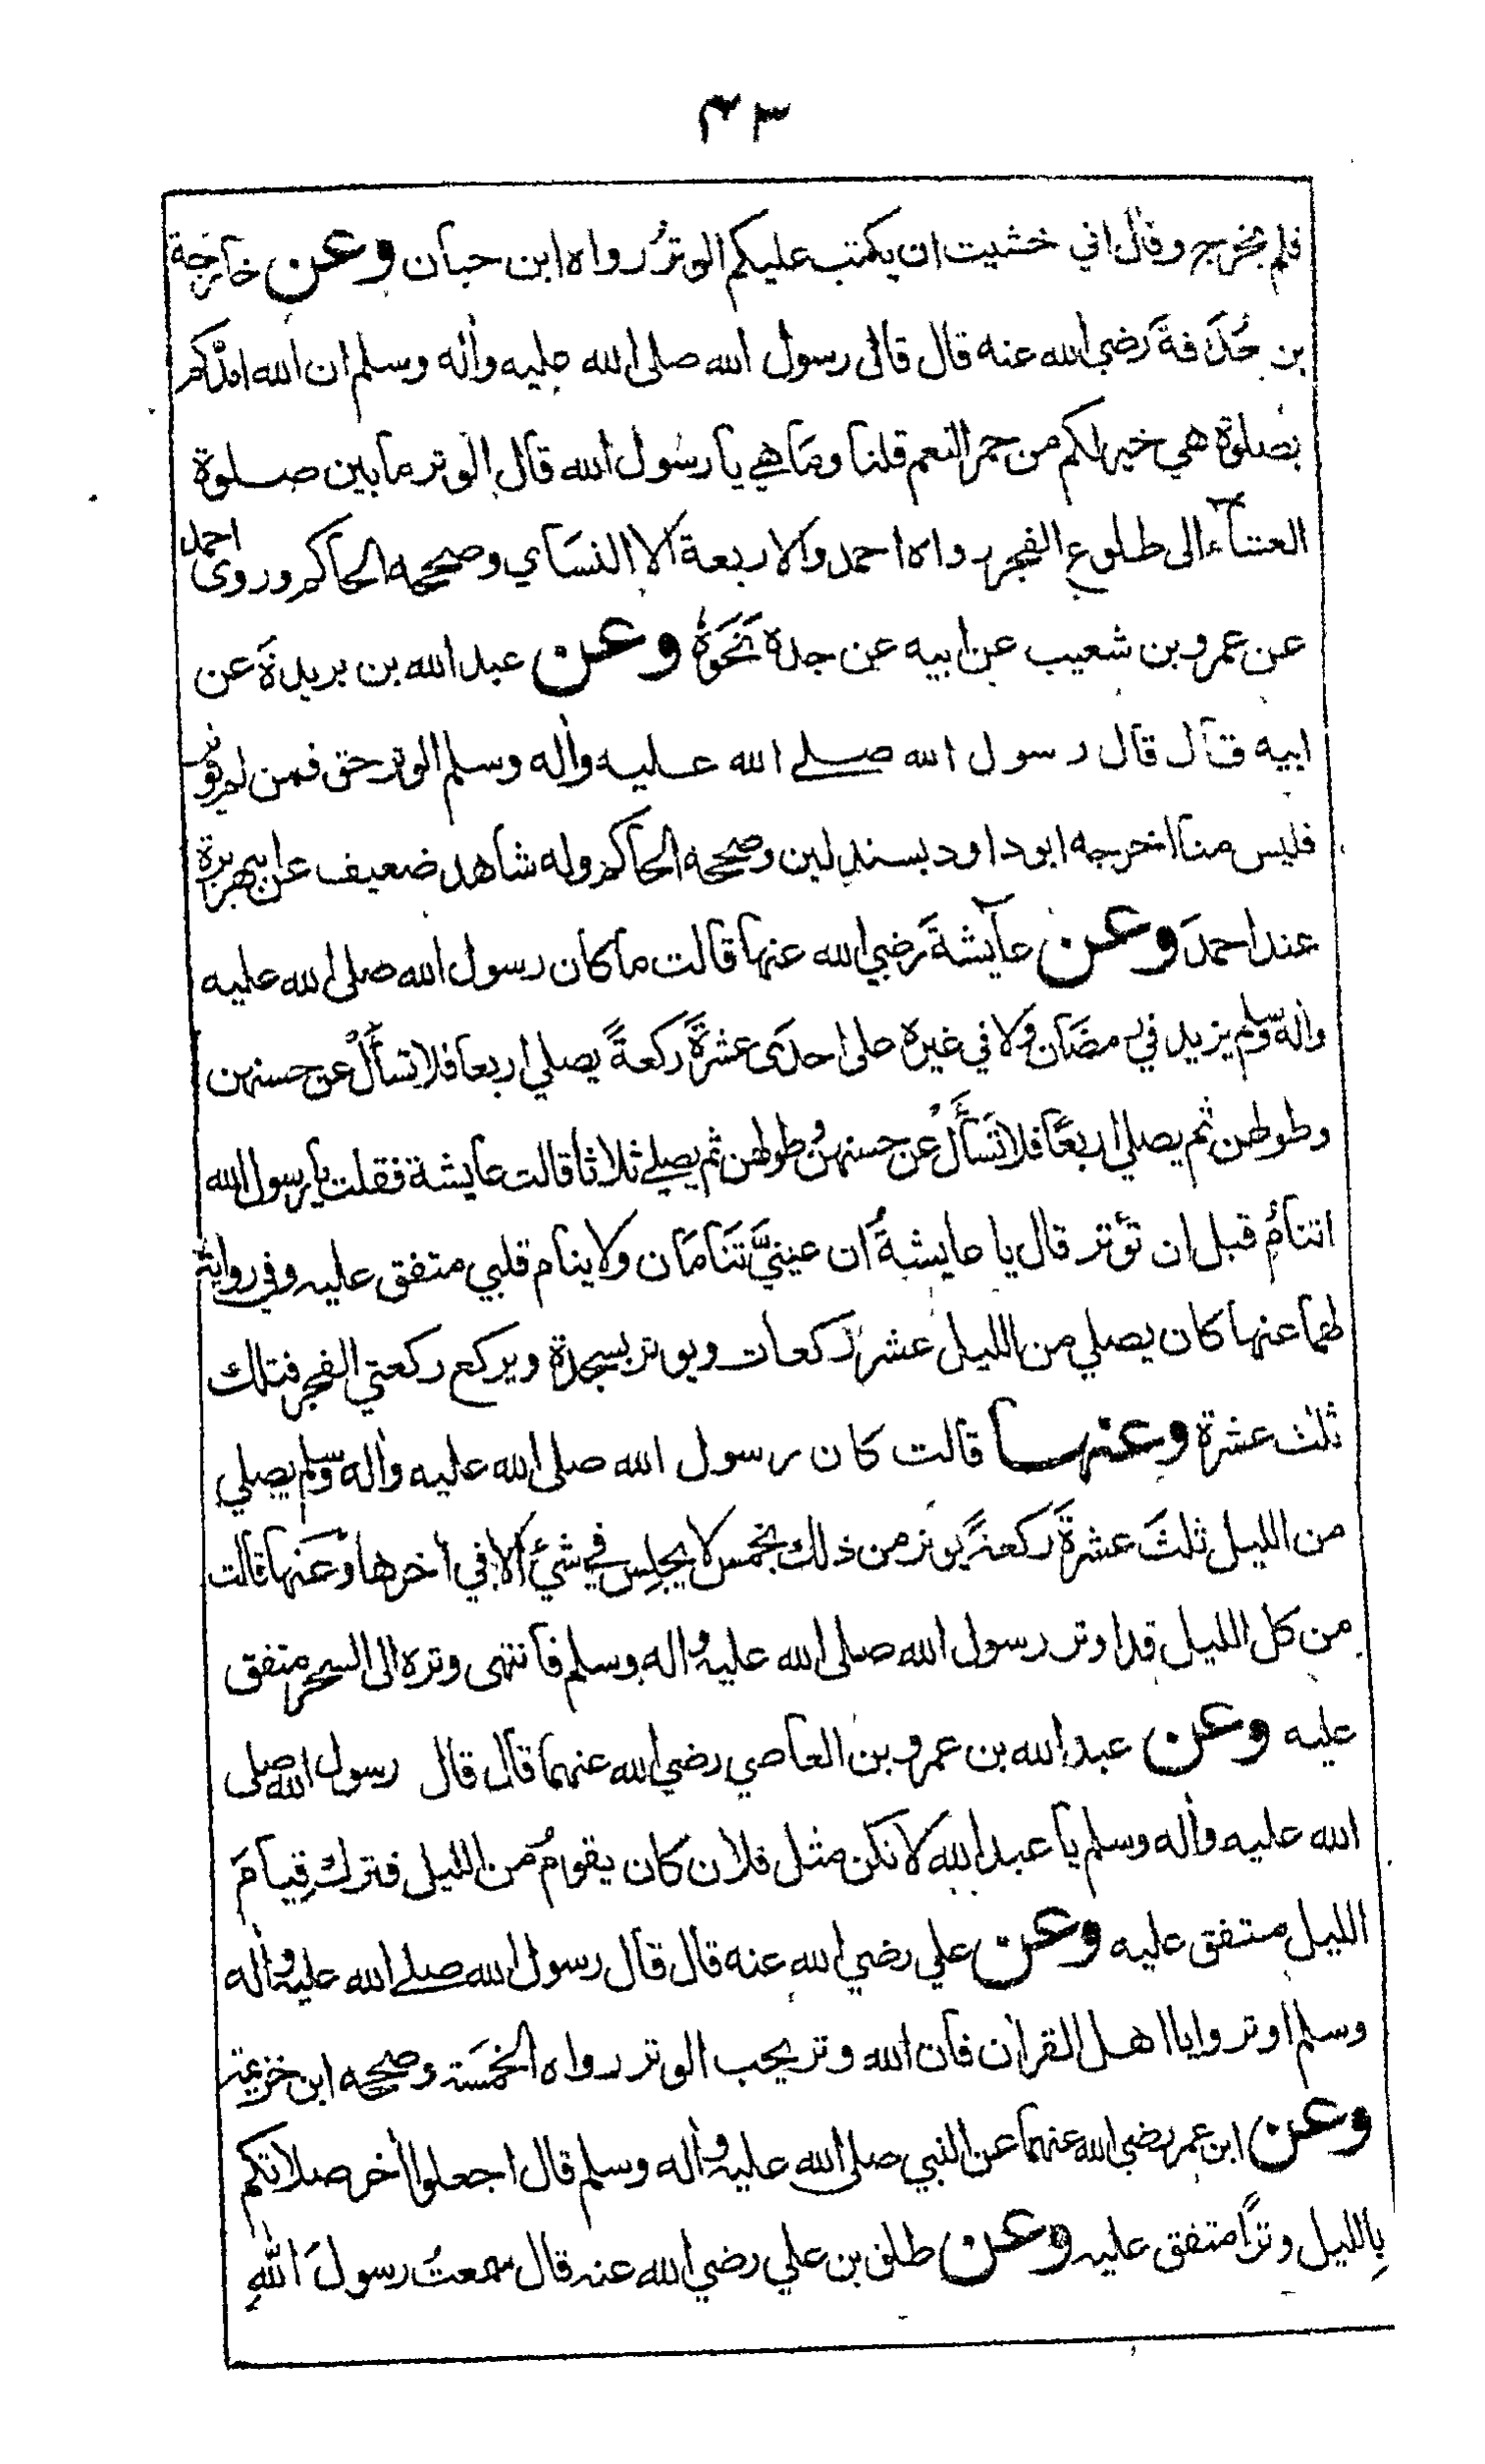 ٤٣
فلم يخرج وقال اني خشيت ان يكتب عليكم الوتر رواه ابن حبان وعن خارجة
بن حُذَافةَ رضي الله عنه قال قال رسول الله صلى الله عليه واٰله وسلم ان الله امدّكم
بصلوة هي خير لكم من حمر النعم قلنا وما هي يا رسول الله قال الوتر ما بين صلوة
العشآء الى طلوع الفجر رواه احمد والاربعة الا النساي وصححه الحاكم وروى احمد
عن عمرو بن شعيب عن ابيه عن جده نَحْوَهُ وعن عبد الله بن بريدةَ عن
ابيه قال قال رسول الله صلے الله عليه واٰله وسلم الوتر حق فمن لم يوتر
فليس منا اخرجه ابو داود بسند لين وصححه الحاكم وله شاهد ضعيف عن ابي هريرة
عند احمدَ وعن عآيشةَ رضي الله عنها قالت ما كان رسول الله صلى الله عليه
واٰله وسلم يزيد في رمضَان ولا في غيره على احدَى عشرةَ ركعةً يصلي اربعا فلا تسأَلْ عن حسنهن
وطولهن ثم يصلي اربعًا فلا تَسأَلْ عن حسنهن وطولهن ثم يصلے ثلاثا قالت عايشة فقلت يا رسول الله
اتنامُ قبل ان تؤتر قال يا عايشةُ ان عينيَّ تَنَامَان ولا ينام قلبي متفق عليه وفي رواية
لهما عنها كان يصلي من الليل عشرَ ركعات ويوتر بسجدة ويركع ركعتي الفجر فتلك
ثلث عشرة وعنها قالت كان رسول الله صلى الله عليه واٰله وسلم يصلي
من الليل ثلثَ عشرةَ ركعةً يوتر من ذلك بخمس لا يجلِس في شيْءٍ الا في اٰخرها وعَنها قالت
من كل الليل قد اوتر رسول الله صلى الله عليه واٰله وسلم فانتهى وتره الى السحر متفق
عليه وعن عبد الله بن عمرو بن العاصي رضي الله عنهما قال قال رسول الله صلى
الله عليه واٰله وسلم يا عبد الله لا تكن مثل فلان كان يقومُ من الليل فترك قيامَ
الليل متفق عليه وعن علي رضي الله عنه قال قال رسول الله صلے الله عليه واٰله
وسلم اوتروا يا اهل القراٰن فان الله وتر يحب الوتر رواه الخمسَة وصححه ابن خزيمة
وعن ابن عمر رضي الله عنهما عن النبي صلى الله عليه واٰله وسلم قال اجعلوا اٰخر صلاتكم
بِالليل وترًا متفق عليه وعن طلق بن علي رضي الله عنه قال سمعتُ رسولَ اللّٰهِ